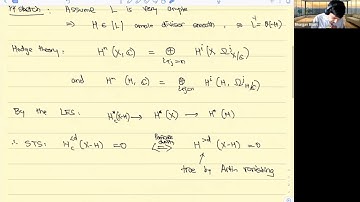 Pf sketch : Assume L is very ample
⇒ H ∈ |L| ample divisor smooth , ≅ L^∨ = O(-H)
Hodge theory : H^n (X, ℂ) = ⊕_{i+j=n} H^i (X, Ω^j_{X/ℂ})
and H^n (H, ℂ) = ⊕_{i+j=n} H^i (H, Ω^j_{H/ℂ})
By the LES : H^*_c(X-H) → H^*(X) → H^*(H)
∴ STS : H_c^{<d} (X-H) = 0 ⟺ H^{>d} (X-H) = 0
true by Artin vanishing